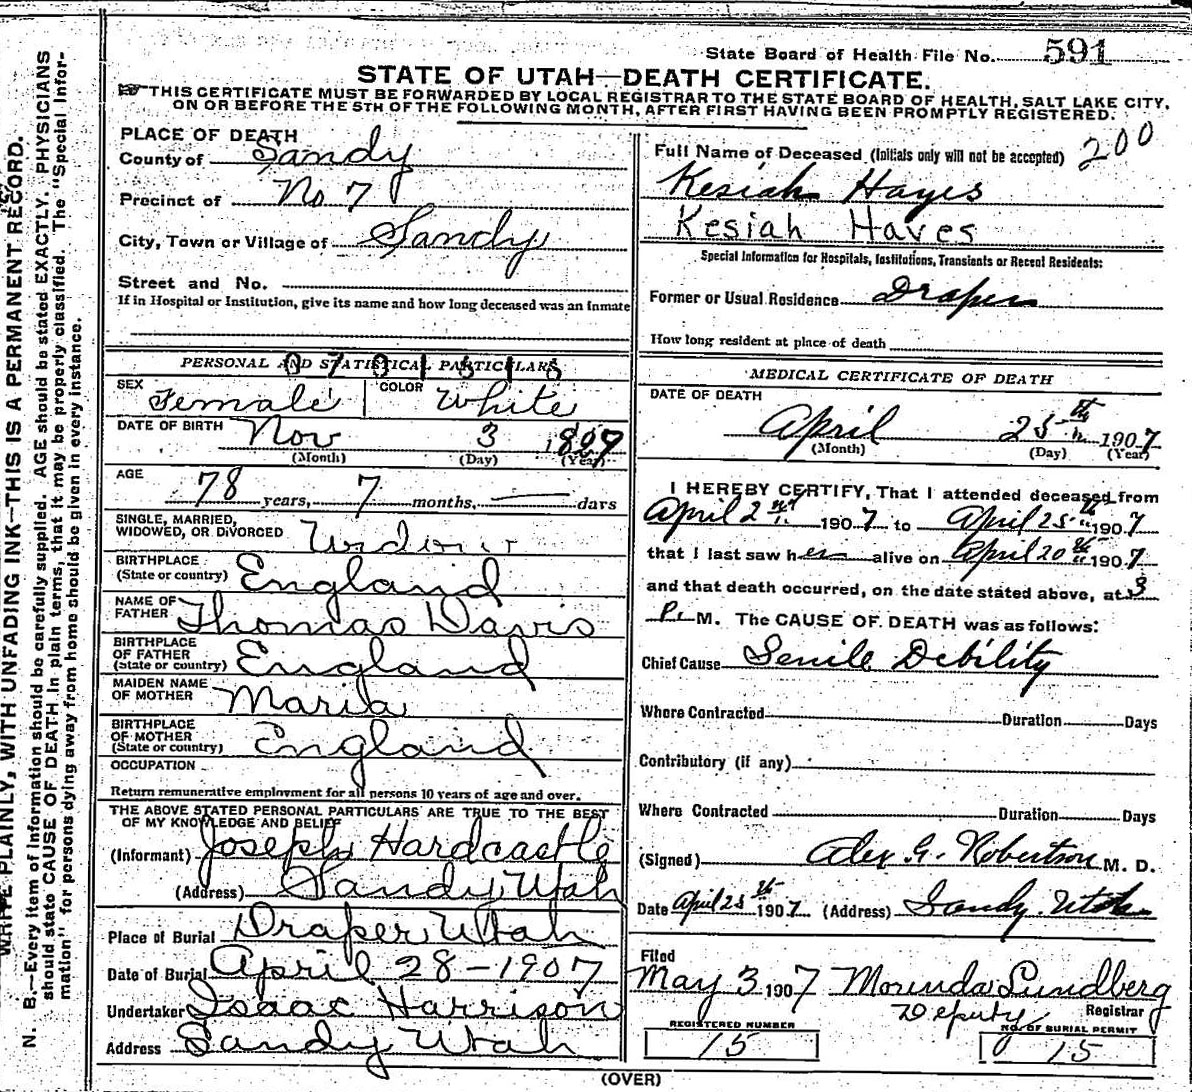 State Board of Health File No. 591
STATE OF UTAH—DEATH CERTIFICATE.
THIS CERTIFICATE MUST BE FORWARDED BY LOCAL REGISTRAR TO THE STATE BOARD OF HEALTH, SALT LAKE CITY,
ON OR BEFORE THE 5TH OF THE FOLLOWING MONTH, AFTER FIRST HAVING BEEN PROMPTLY REGISTERED.
WRITE PLAINLY, WITH UNFADING INK—THIS IS A PERMANENT RECORD.
N. B.—Every item of information should be carefully supplied. AGE should be stated EXACTLY. PHYSICIANS
should state CAUSE OF DEATH in plain terms, that it may be properly classified. The "Special Infor-
mation" for persons dying away from home should be given in every instance.
PLACE OF DEATH
County of Sandy
Precinct of No 7
City, Town or Village of Sandy
Street and No.
If in Hospital or Institution, give its name and how long deceased was an Inmate
PERSONAL AND STATISTICAL PARTICULARS
SEX Female COLOR White
DATE OF BIRTH Nov 3
(Month) (Day) (Year)
AGE 78 years, 7 months, days
SINGLE, MARRIED,
WIDOWED, OR DIVORCED
BIRTHPLACE
(State or country) England
NAME OF
FATHER Thomas Davis
BIRTHPLACE
OF FATHER
(State or country) England
MAIDEN NAME
OF MOTHER Maria
BIRTHPLACE
OF MOTHER
(State or country) England
OCCUPATION
Return remunerative employment for all persons 10 years of age and over.
THE ABOVE STATED PERSONAL PARTICULARS ARE TRUE TO THE BEST
OF MY KNOWLEDGE AND BELIEF
(Informant) Joseph Hardcastle
(Address) Sandy Utah
Place of Burial Draper Utah
Date of Burial April 28-1907
Undertaker Isaac Harrison
Address Sandy Utah
Full Name of Deceased (Initials only will not be accepted) 200
Kesiah Hayes
Kesiah Hayes
Special Information for Hospitals, Institutions, Transients or Recent Residents:
Former or Usual Residence Draper
How long resident at place of death
MEDICAL CERTIFICATE OF DEATH
DATE OF DEATH
April 25th 1907
(Month) (Day) (Year)
I HEREBY CERTIFY, That I attended deceased from
April 2nd 1907 to April 25th 1907
that I last saw her alive on April 20th 1907
and that death occurred, on the date stated above, at 3
P. M. The CAUSE OF DEATH was as follows:
Chief Cause Senile Debility
Where Contracted Duration Days
Contributory (if any)
Where Contracted Duration Days
(Signed) Alex G. Robertson M. D.
Date April 25th 1907 (Address) Sandy. Utah
Filed
May 3 1907 Morinda Lundberg
Deputy Registrar
REGISTERED NUMBER
15
NO. OF BURIAL PERMIT
15
(OVER)